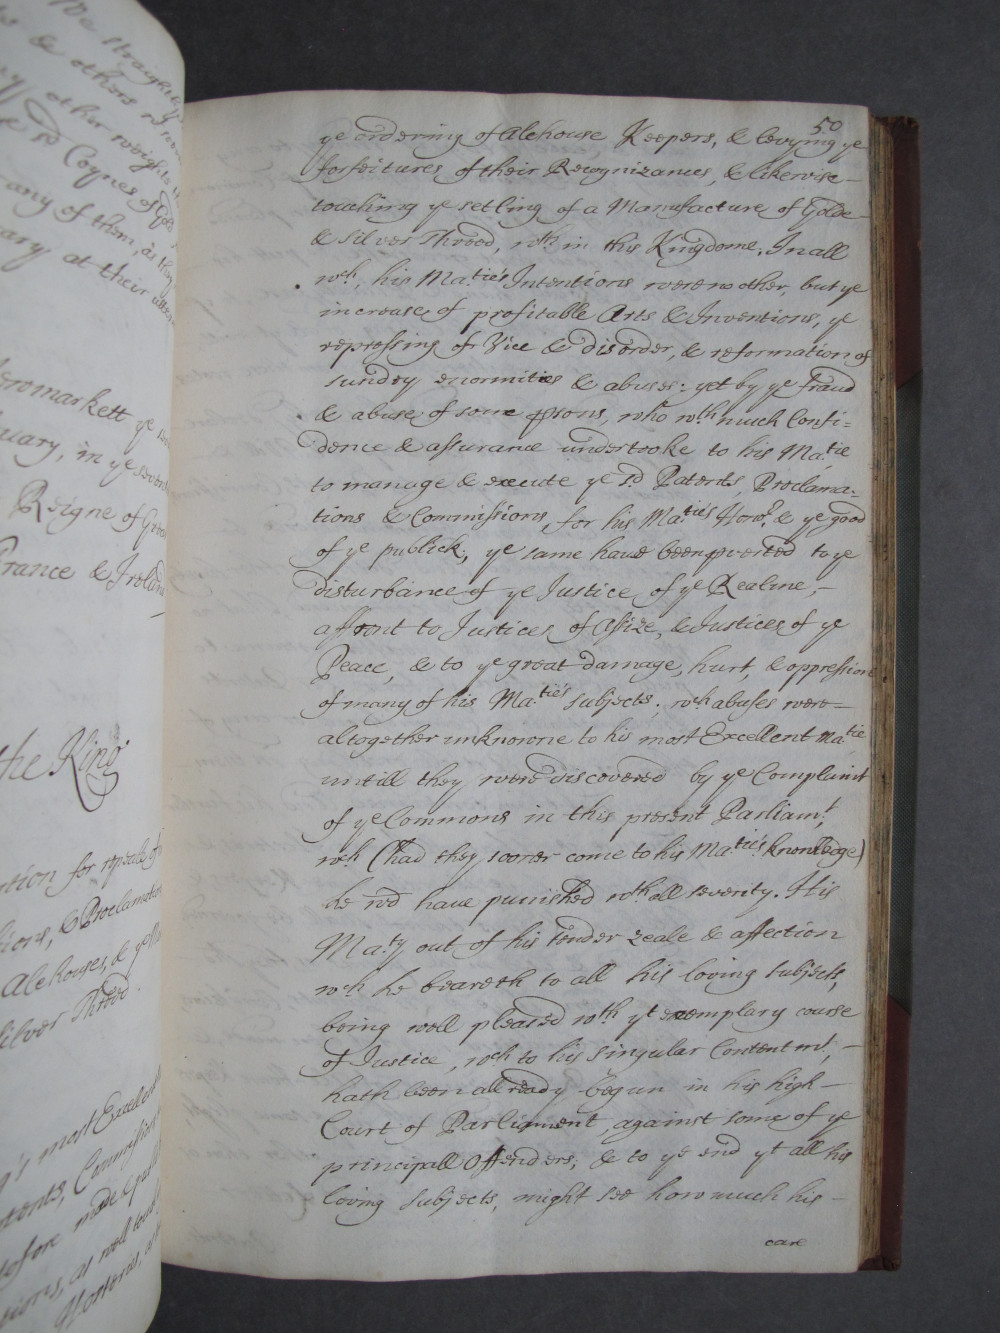 We straightly
& others
other weights
sd Coynes of Gold
any of them, as they
at their utter
Newmarkett ye
uary, in ye seven
Reigne of Great
France & Ireland
the King
tion for repeale of
sions, & Proclamation
Alehouses, & ye
Silver Threed.
's most Excellent
tents, Commissions
tofore made &
tions, as well touching
Hosteries,
50
ye ordering of Alehouse Keepers, & levying ye
forfeitures of their Recognizances, & likewise—
touching ye setling of a Manufacture of Golde—
& silver Threed, wth in this Kingdome. In all
wch, his Maties Intentions were no other, but ye
increase of profitable Arts & Inventions, ye
repressing of Vice & disorder, & reformation of
sundry enormities & abuses: yet by ye fraud
& abuse of some psons, who wth much Confi=
dence & assurance undertooke to his Matie
to manage & execute ye sd Patents, Proclama=
tions & Commissions, for his Maties Honor, & ye good
of ye publick, ye same have been pverted to ye
disturbance of ye Justice of ye Realme,—
affront to Justices of Assize, & Justices of ye
Peace, & to ye great damage, hurt, & oppression
of many of his Maties subjects; wch abuses were—
altogether unknowne to his most Excellent Matie
untill they were discovered by ye Complaint
of ye Commons in this present Parliamt,
wch (had they sooner come to his Maties knowledge)
he wd have punished wth all severity. His
Maty out of his tender zeale & affection
wch he beareth to all his loving subjects,
being well pleased wth yt exemplary course
of Justice, wch to his singular Contentmt,—
hath been allready begun in his high—
Court of Parliament, against some of ye
principall Offenders; & to ye end yt all his
loving subjects, might see how much his—
care